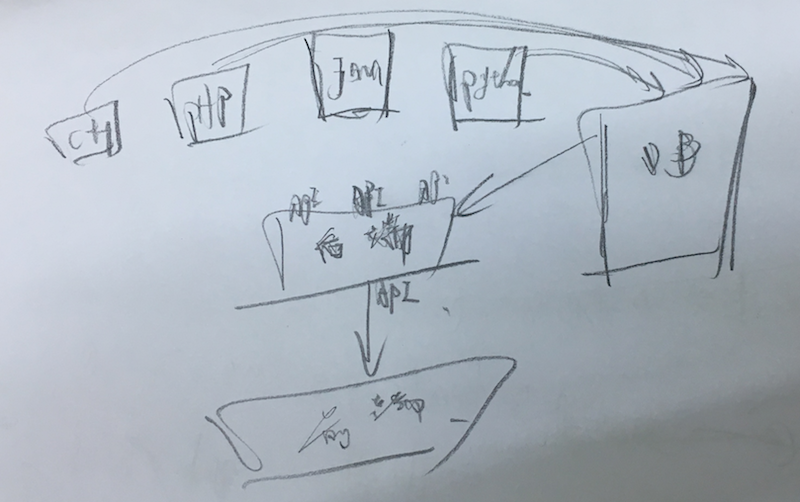 C++
PHP
Java
Python
DB
API API API
后端
API
前端